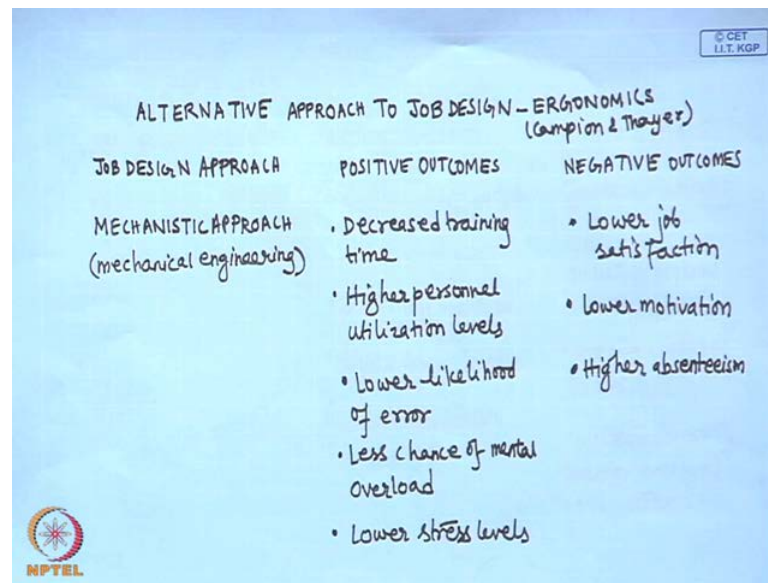 © CET
I.I.T. KGP
ALTERNATIVE APPROACH TO JOB DESIGN – ERGONOMICS
(Campion & Thayer)
JOB DESIGN APPROACH
POSITIVE OUTCOMES
NEGATIVE OUTCOMES
MECHANISTIC APPROACH
(mechanical engineering)
• Decreased training
time
• Higher personnel
utilization levels
• Lower likelihood
of error
• Less chance of mental
overload
• Lower stress levels
• Lower job
satisfaction
• Lower motivation
• Higher absenteeism
NPTEL